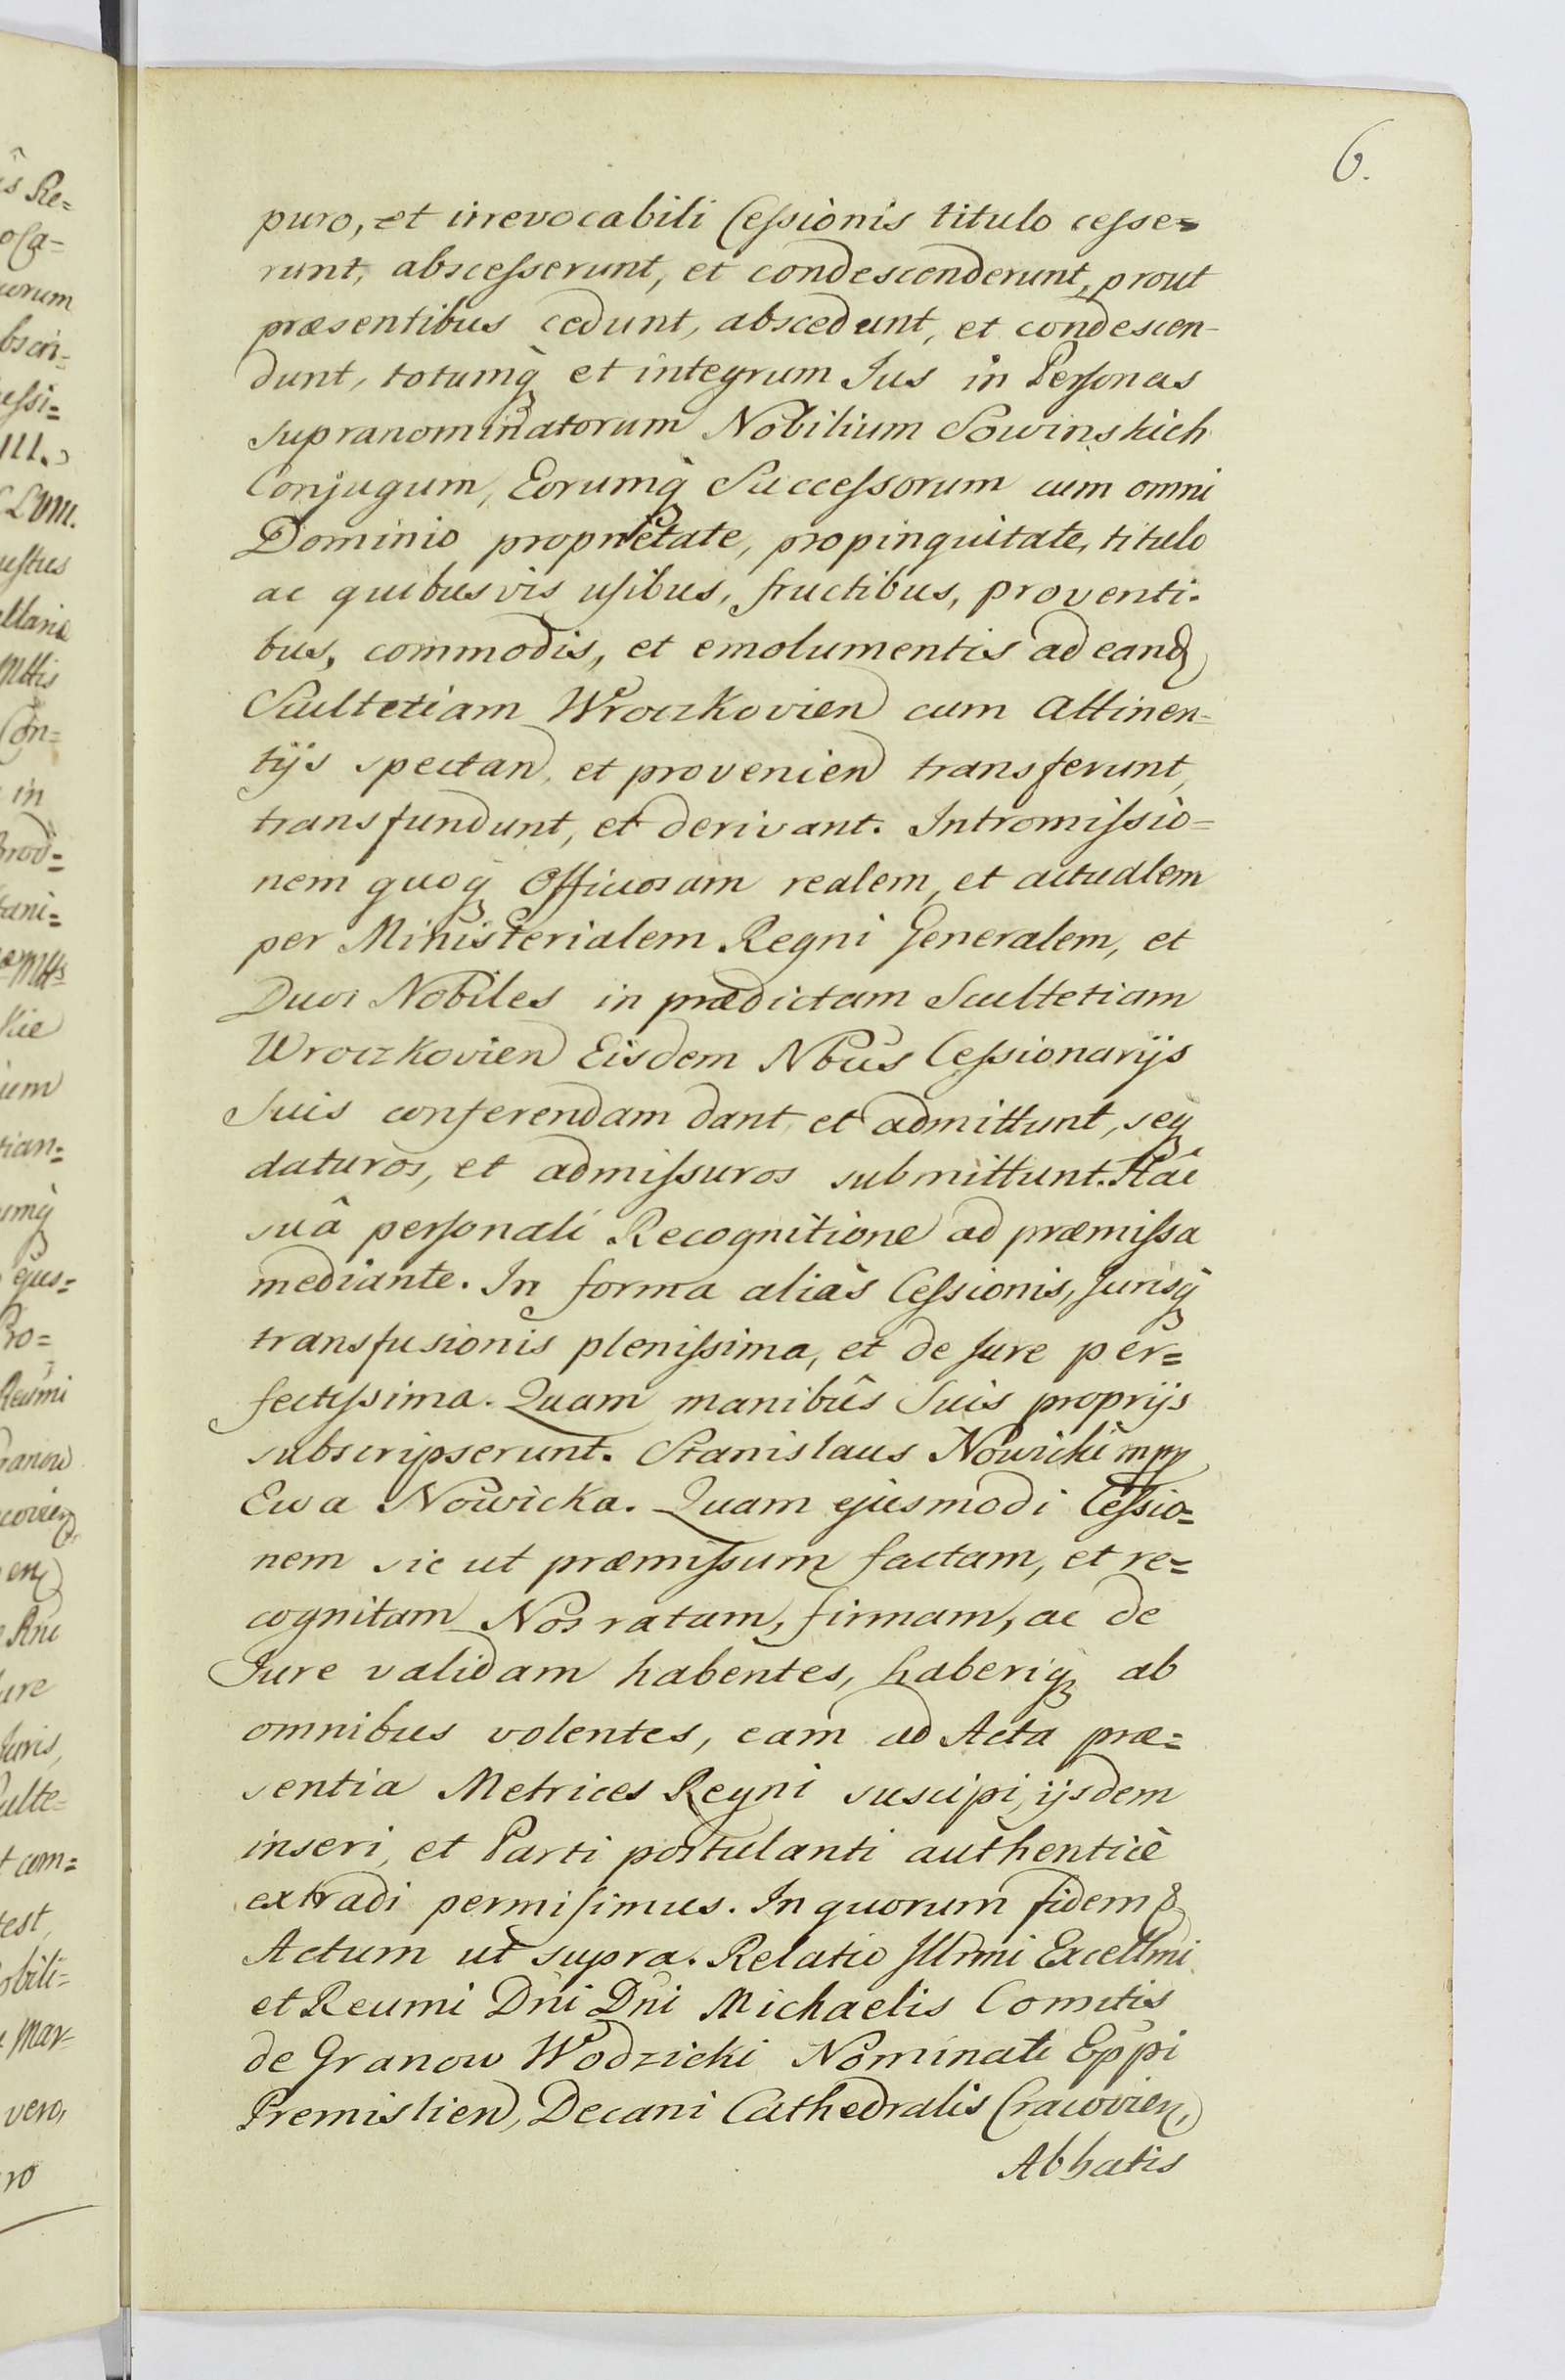 6.
puro, et irrevocabili Cessionis titulo cesse=
runt, abscesserunt, et condescenderunt, prout
præsentibus cedunt, abscedunt, et condescen-
dunt, totumq̀ et integrum Jus in Personas
supranominatorum Nobilium Sowinskich
Conjugum, Eorumq̀ Successorum cum omni
Dominio proprietate, propinquitate, titulo
ac quibusvis usibus, fructibus, proventi-
bus, commodis, et emolumentis ad eand
Scultetiam Wroczkovien cum Attinen-
tijs spectan, et provenien transferunt,
transfundunt, et derivant. Intromissio=
nem quoq̀ Officiosam realem, et actualem
per Ministerialem Regni Generalem, et
Duos Nobiles in prædictam Scultetiam
Wroczkovien Eisdem Nbus Cessionarijs
suis conferendam dant et admittunt, seq
daturos, et admissuros submittunt. Hâc
suâ personali Recognitione ad præmissa
mediante. In forma aliàs Cessionis, Jurisq̀
transfusionis plenissima, et de Jure per=
fectissima. Quam manibûs Suis proprijs
subscripserunt. Stanislaus Nowicki mpp
Ewa Nowicka. Quam ejusmodi Cessio=
nem sic ut præmissum factam, et re=
cognitam Nos ratam, firmam, ac de
Jure validam habentes, haberiq ab
omnibus volentes, eam ad Acta præ=
sentia Metrices Regni suscipi, ijsdem
inseri, et Parti postulanti authenticè
extradi permisimus. In quorum fidem &
Actum ut supra. Relatio Illrmi Excellmi
et Reumi Dni Dni Michaelis Comitis
de Granow Wodzicki Nominati Eppi
Premislien, Decani Cathedralis Cracovien,
Abbatis